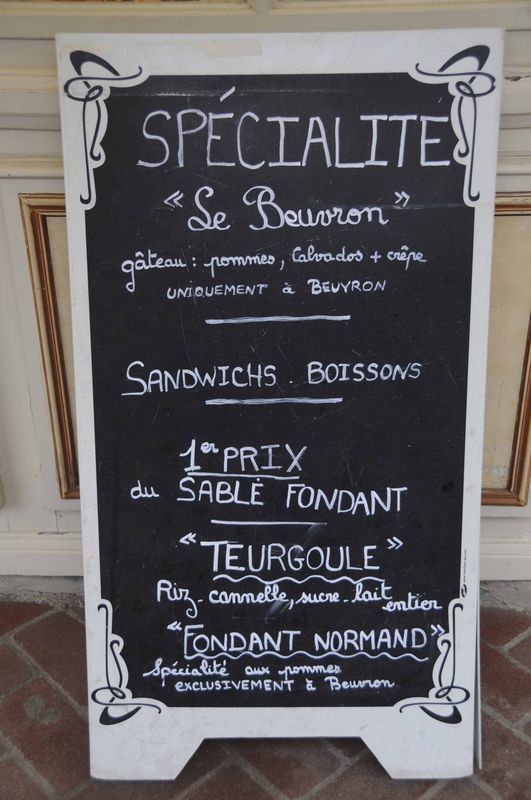 SPÉCIALITÉ
"Le Beuvron"
gâteau : pommes, Calvados + crêpe
UNIQUEMENT à BEUVRON
SANDWICHS . BOISSONS
1er PRIX
du SABLÉ FONDANT
"TEURGOULE"
Riz - cannelle, sucre - lait entier
"FONDANT NORMAND"
Spécialité aux pommes
EXCLUSIVEMENT à Beuvron